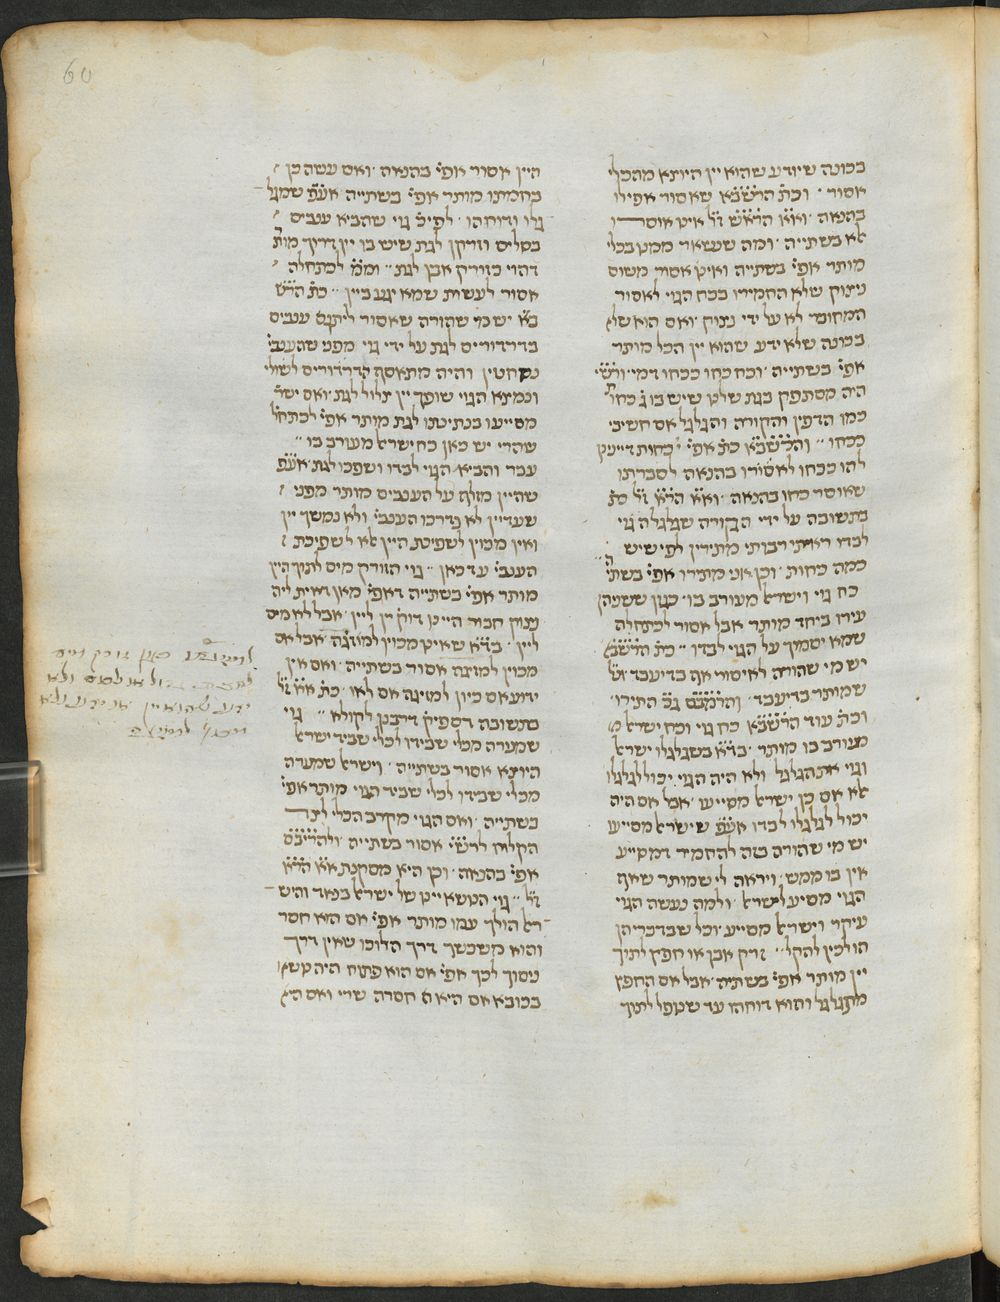 60
בכוונה שיודע שהוא יין היוצא מהכלי
אסור · וכת הרשבא שאסור אפילו
בהנאה · ואא הראש זל אינו אוסר
אלא בשתייה · ומה שנשאר ממנו בכלי
מותר אפי בשתייה ואינו אסור משום
ניצוק שלא החמירו בכח הגוי לאסור
המחובר לא על ידי נצוק · ואם הוא שלא
בכוונה שלא ידע שהוא יין הכל מותר
אפי בשתייה · וכח כחו ככחו דמי · ורשי
היה מסתפק בגת שלנו שיש בו ג כחו
כמו הדפין והקורה והגלגל אם חשיבי
ככחו · והרשבא כת אפי כחות דיינינן
להו ככחו לאסורו בהנאה לסברתו
שאוסר כחו בהנאה · ואא הרא זל כת
בתשובה על ידי הקורה שגלגלה גוי
לבדו ראיתי רבותי מתירין לפי שיש
כמה כחות · וכן אני מתירו אפי בשתי
כח גוי וישראל מעורב בו · כגון ששניהן
עירו ביחד מותר אבל אסור לכתחלה
שמא יסמוך על הגוי לבדו · כת הרשבא
יש מי שהורה לאיסור אף בדיעבד ונל
שמותר בדיעבד · והרמבם גכ התירו ·
וכת עוד הרשבא כח גוי וכח ישראל
מעורב בו מותר · בדא בשגלגלו ישראל
וגוי את הגלגל ולא היה הגוי יכול לגלגלו
אלא אם כן ישראל מסייעו · אבל אם היה
יכול לגלגלו לבדו אעפ שישראל מסייעו
יש מי שהורה בזה להחמיר דמסייע
אין בו ממש · ויראה לי שמותר שאף
הגוי מסייע לישראל · ולמה נעשה הגוי
עיקר וישראל מסייע · וכל שבדבריהן
הולכין להקל · זרק אבן או חפץ לתוך
יין מותר אפי בשתיה · אבל אם החפץ
מתגלגל והוא דוחהו עד שנופל לתוך
היין אסור אפי בהנאה · ואם עשה כן
בחמתו מותר אפי בשתייה אעפ שמגל
גלו ודוחהו · לפיכ גוי שהביא ענבים
בסלים וזרקן לגת שיש בו יין דרוך מות
דהוי כזורק אבן לגת · ומ״מ לכתחלה
אסור לעשות שמא יגע ביין · כת הרש
בא יש מי שהורה שאסור ליקח ענבים
בדרדורים לגת על ידי גוי מפני שהענבי
נסחטין והיה מתאסף הדרדורים לשולי
ונמצא הגוי שופך יין צלול לגת · ואם ישר
מסייעו בנתינתו לגת מותר אפי לכתחל
שהרי יש כאן כח ישראל מעורב בו
עבר והביא הגוי לבדו ושפכו לגת אעפ
שהיין צולף על הענבים מותר מפני
שעדיין לא נדרכו הענבי ולא נמשך יין
ואין מכוין לשפיכת היין אלא לשפיכת
הענבי עד כאן · גוי הזורק מים לתוך היין
מותר אפי בשתייה דאפי מאן דאית ליה
נצוק חבור היינו דוק יין ליין · אבל לא מים
ליין · בדא שאינו מכוין למזיגה אבל אם
מכוין למזיגה אסור בשתייה · ואם אין
ידוע אם כיון למזיגה אם לאו · כת אא זל
בתשובה דספיק דרבנן לקולא · גוי
שמערה מכלי שבידו לכלי שביד ישראל
היוצא אסור בשתייה · וישראל שמערה
מכלי שבידו לכלי שביד הגוי מותר אפי
בשתייה · ואם הגוי מקרב הכלי לצד
הקלוח לרשי אסור בשתייה · ולהריבם
אפי בהנאה · וכן היא מסקנת אא הרא
זל · גוי הנושא יינו של ישראל בנאד והיש
ראל הולך עמו מותר אפי אם הוא חסר
והוא משכשך דרך הלוכו שאין דרך
ניסוך לכך אפי אם הוא פתוח היה נושאו
בכובא אם היא חסרה שרי ואם היא